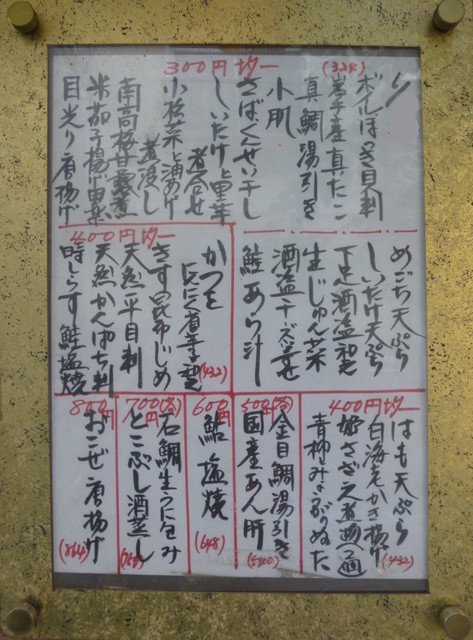 300円均一
(324)
ボイルほっき貝刺
岩手産真たこ
真鯛湯引き
小肌
さばくんせい干し
しいたけと里芋
煮合せ
小松菜と油あげ
煮浸し
南高梅甘露煮
米茄子揚げ田楽
目光り唐揚げ
めごち天ぷら
しいたけ天ぷら
生じゅん菜
鮭あら汁
400円均一
かつを
(432)
きす昆布じめ
天然平目刺
天然かんぱち刺
時しらず鮭塩焼
400円均一
はも天ぷら
白海老かき揚げ
(432)
姫さざえ煮
青柳
ぬた
500円
金目鯛湯引き
国産あん肝
(540)
600円
鮎塩焼
(648)
700円
石鯛生うに包み
とこぶし酒蒸し
800円
おこぜ唐揚げ
(864)